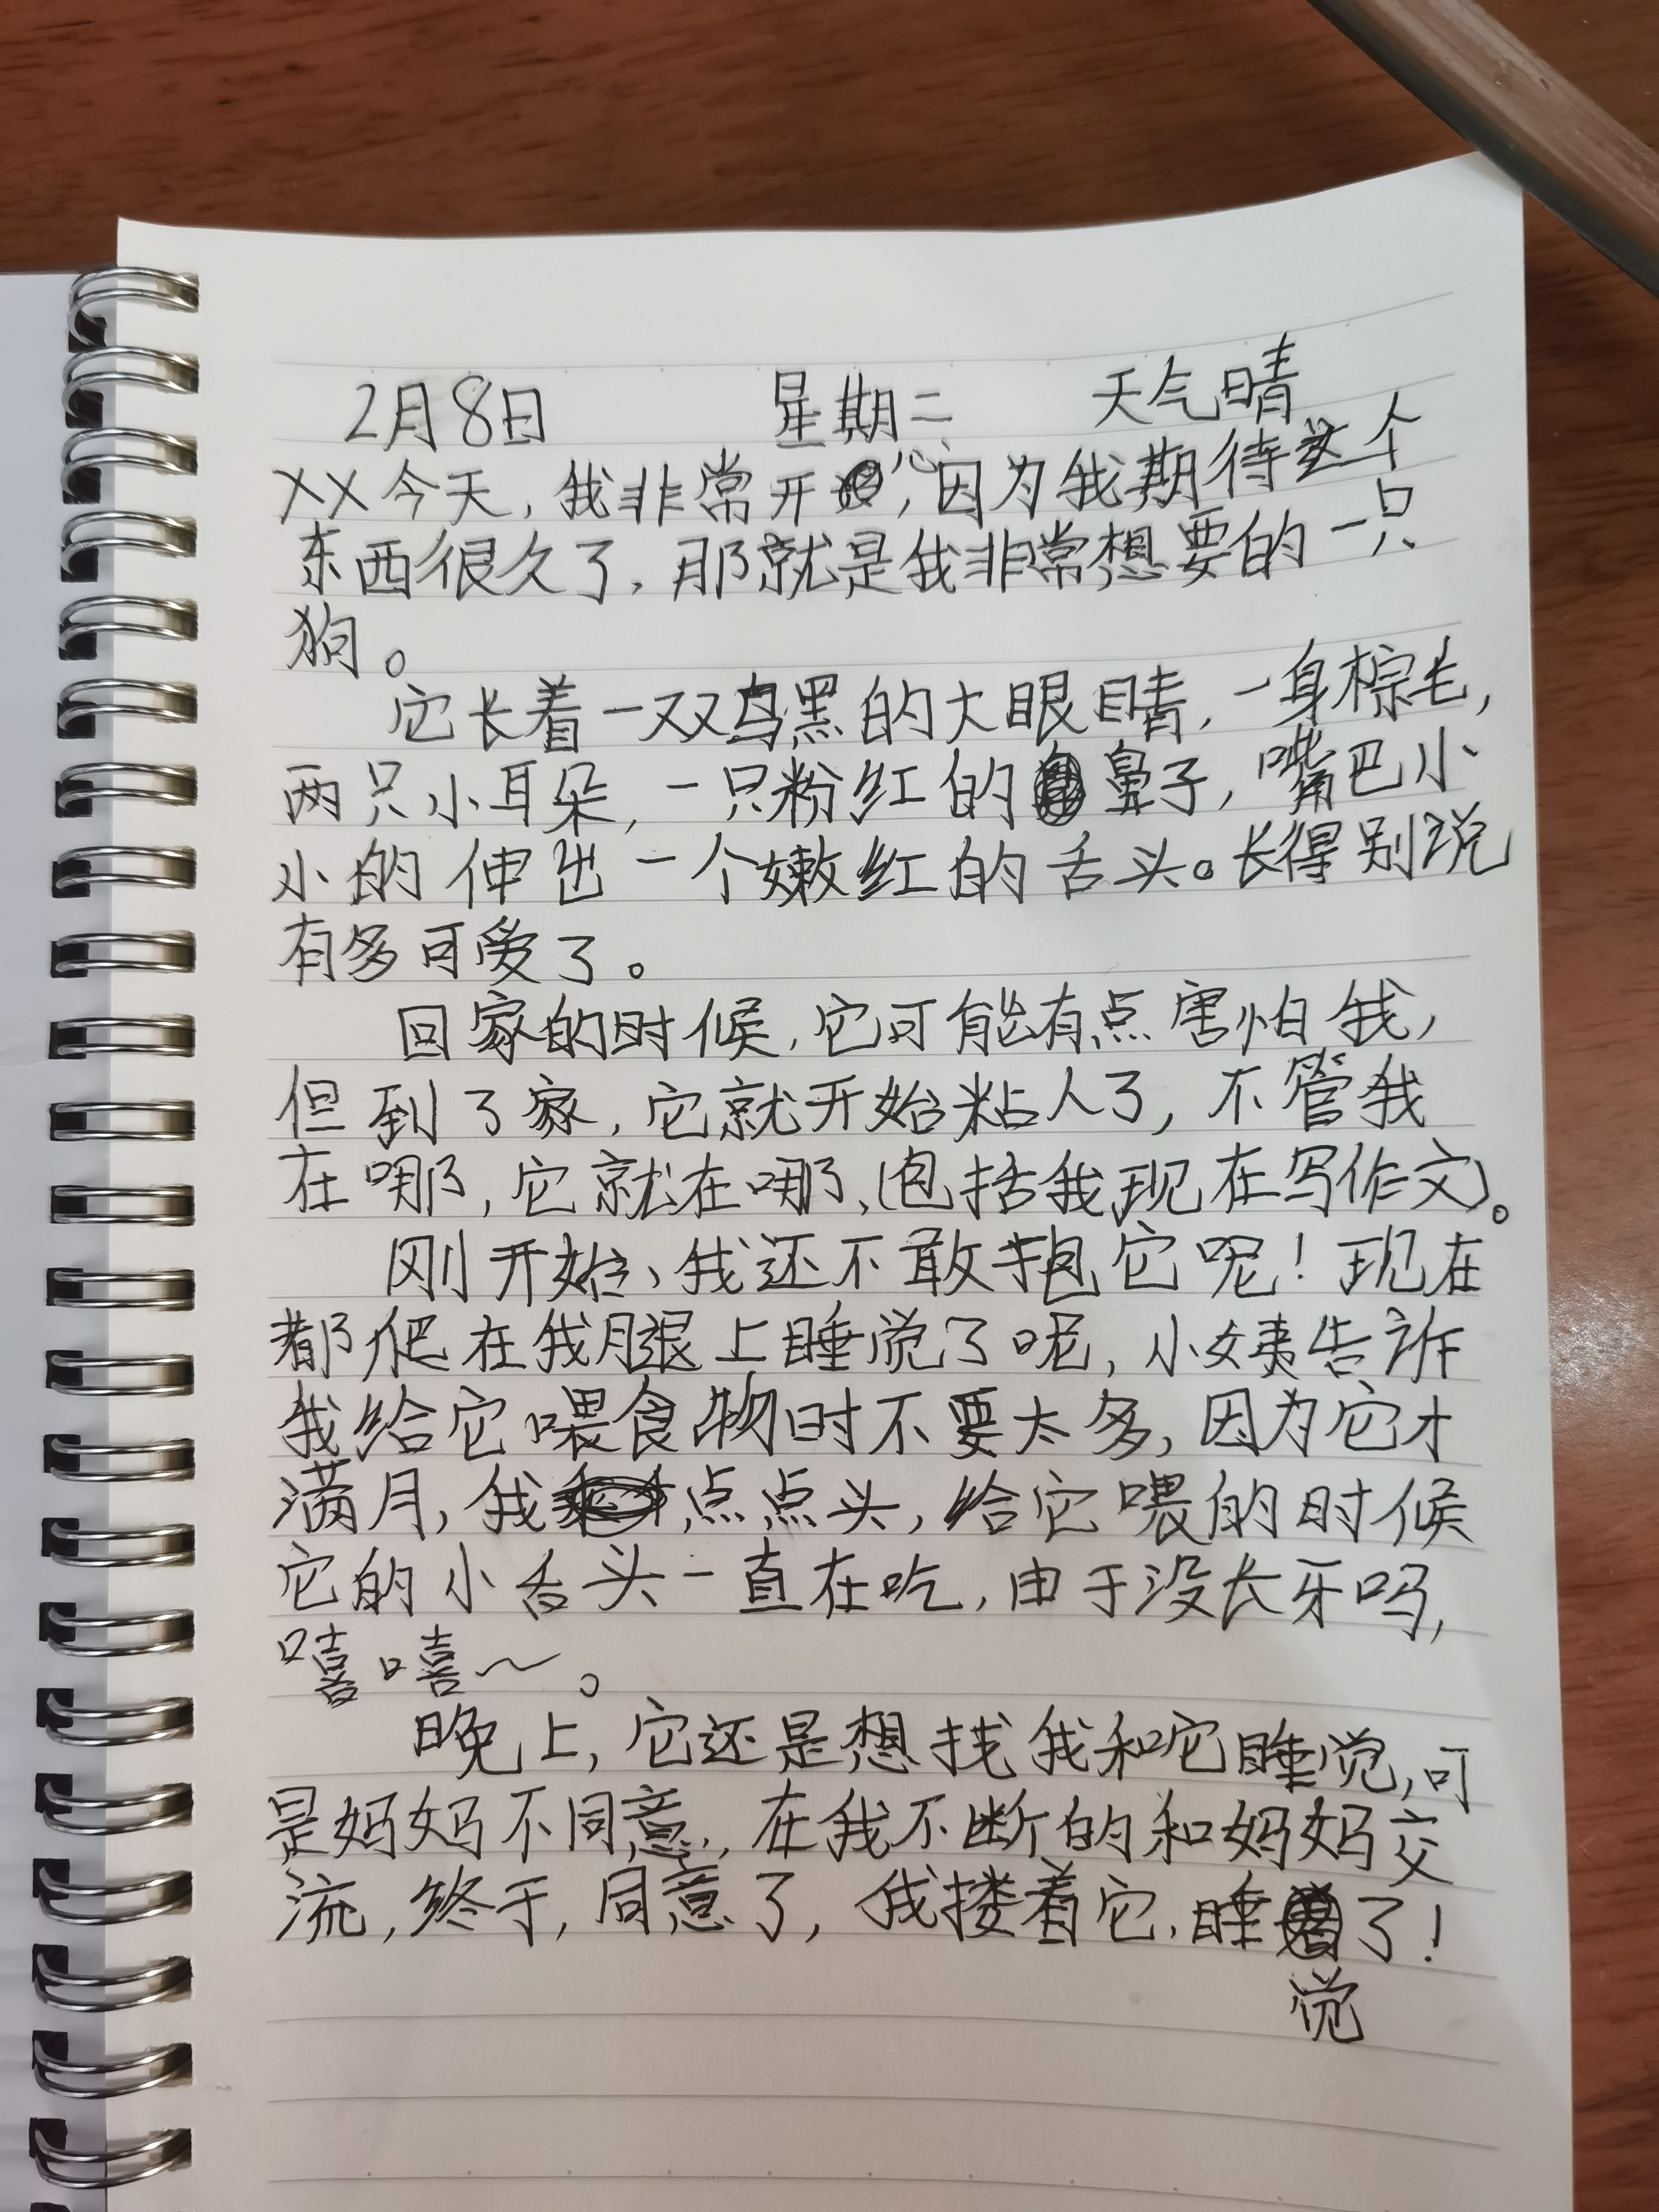 2月8日 星期二 天气晴
××今天，我非常开心，因为我期待这个
东西很久了，那就是我非常想要的一只
狗。
它长着一双乌黑的大眼睛，一身棕毛，
两只小耳朵，一只粉红的鼻子，嘴巴小
小的伸出一个嫩红的舌头。长得别说
有多可爱了。
回家的时候，它可能有点害怕我，
但到了家，它就开始粘人了，不管我
在哪，它就在哪、(包括我现在写作文)。
刚开始、我还不敢抱它呢！现在
都爬在我腿上睡觉了呢，小姨告诉
我给它喂食物时不要太多，因为它才
满月，我点点头，给它喂的时候
它的小舌头一直在吃，由于没长牙吗，
嘻嘻～。
晚上，它还是想找我和它睡觉，可
是妈妈不同意，在我不断的和妈妈交
流，终于，同意了，我搂着它，睡觉了！